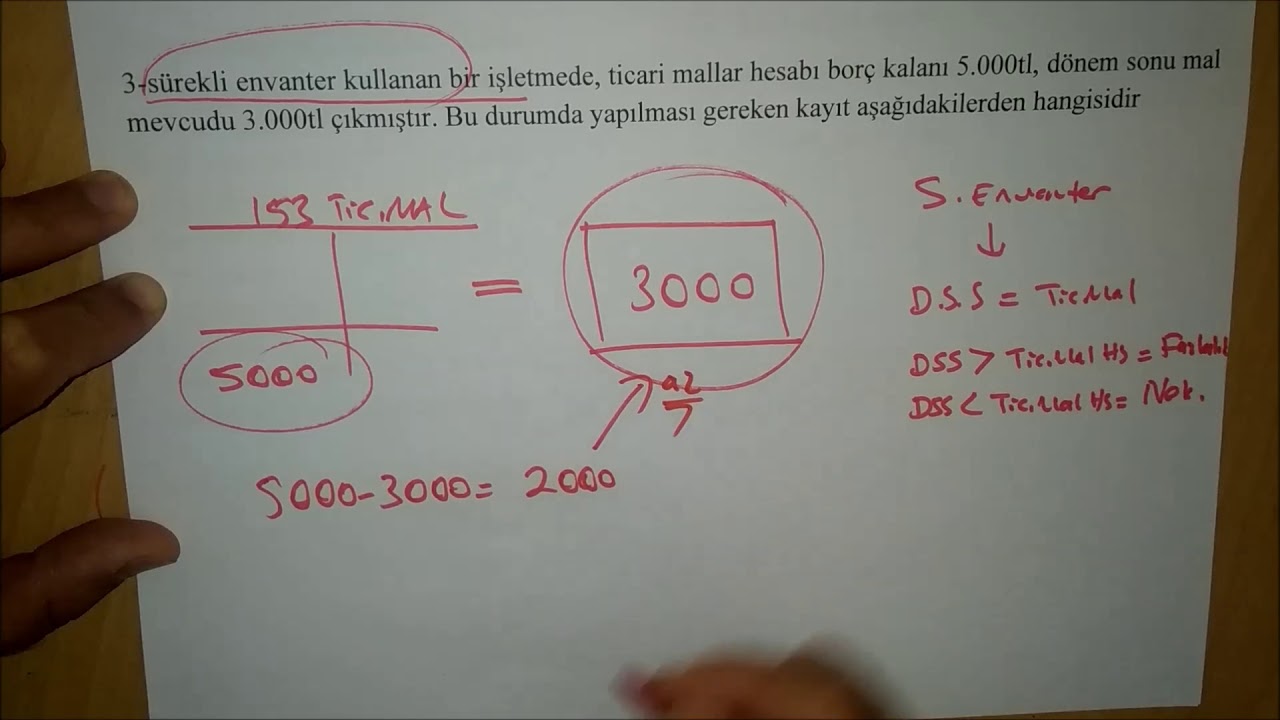 3-sürekli envanter kullanan bir işletmede, ticari mallar hesabı borç kalanı 5.000tl, dönem sonu mal
mevcudu 3.000tl çıkmıştır. Bu durumda yapılması gereken kayıt aşağıdakilerden hangisidir
153 Tic.MAL
S. Envanter
= 3000
D.S.S = Tic Mal
5000
DSS > Tic.Mal Hs =
az
DSS < Tic.Mal Hs = Nok.
5000-3000= 2000